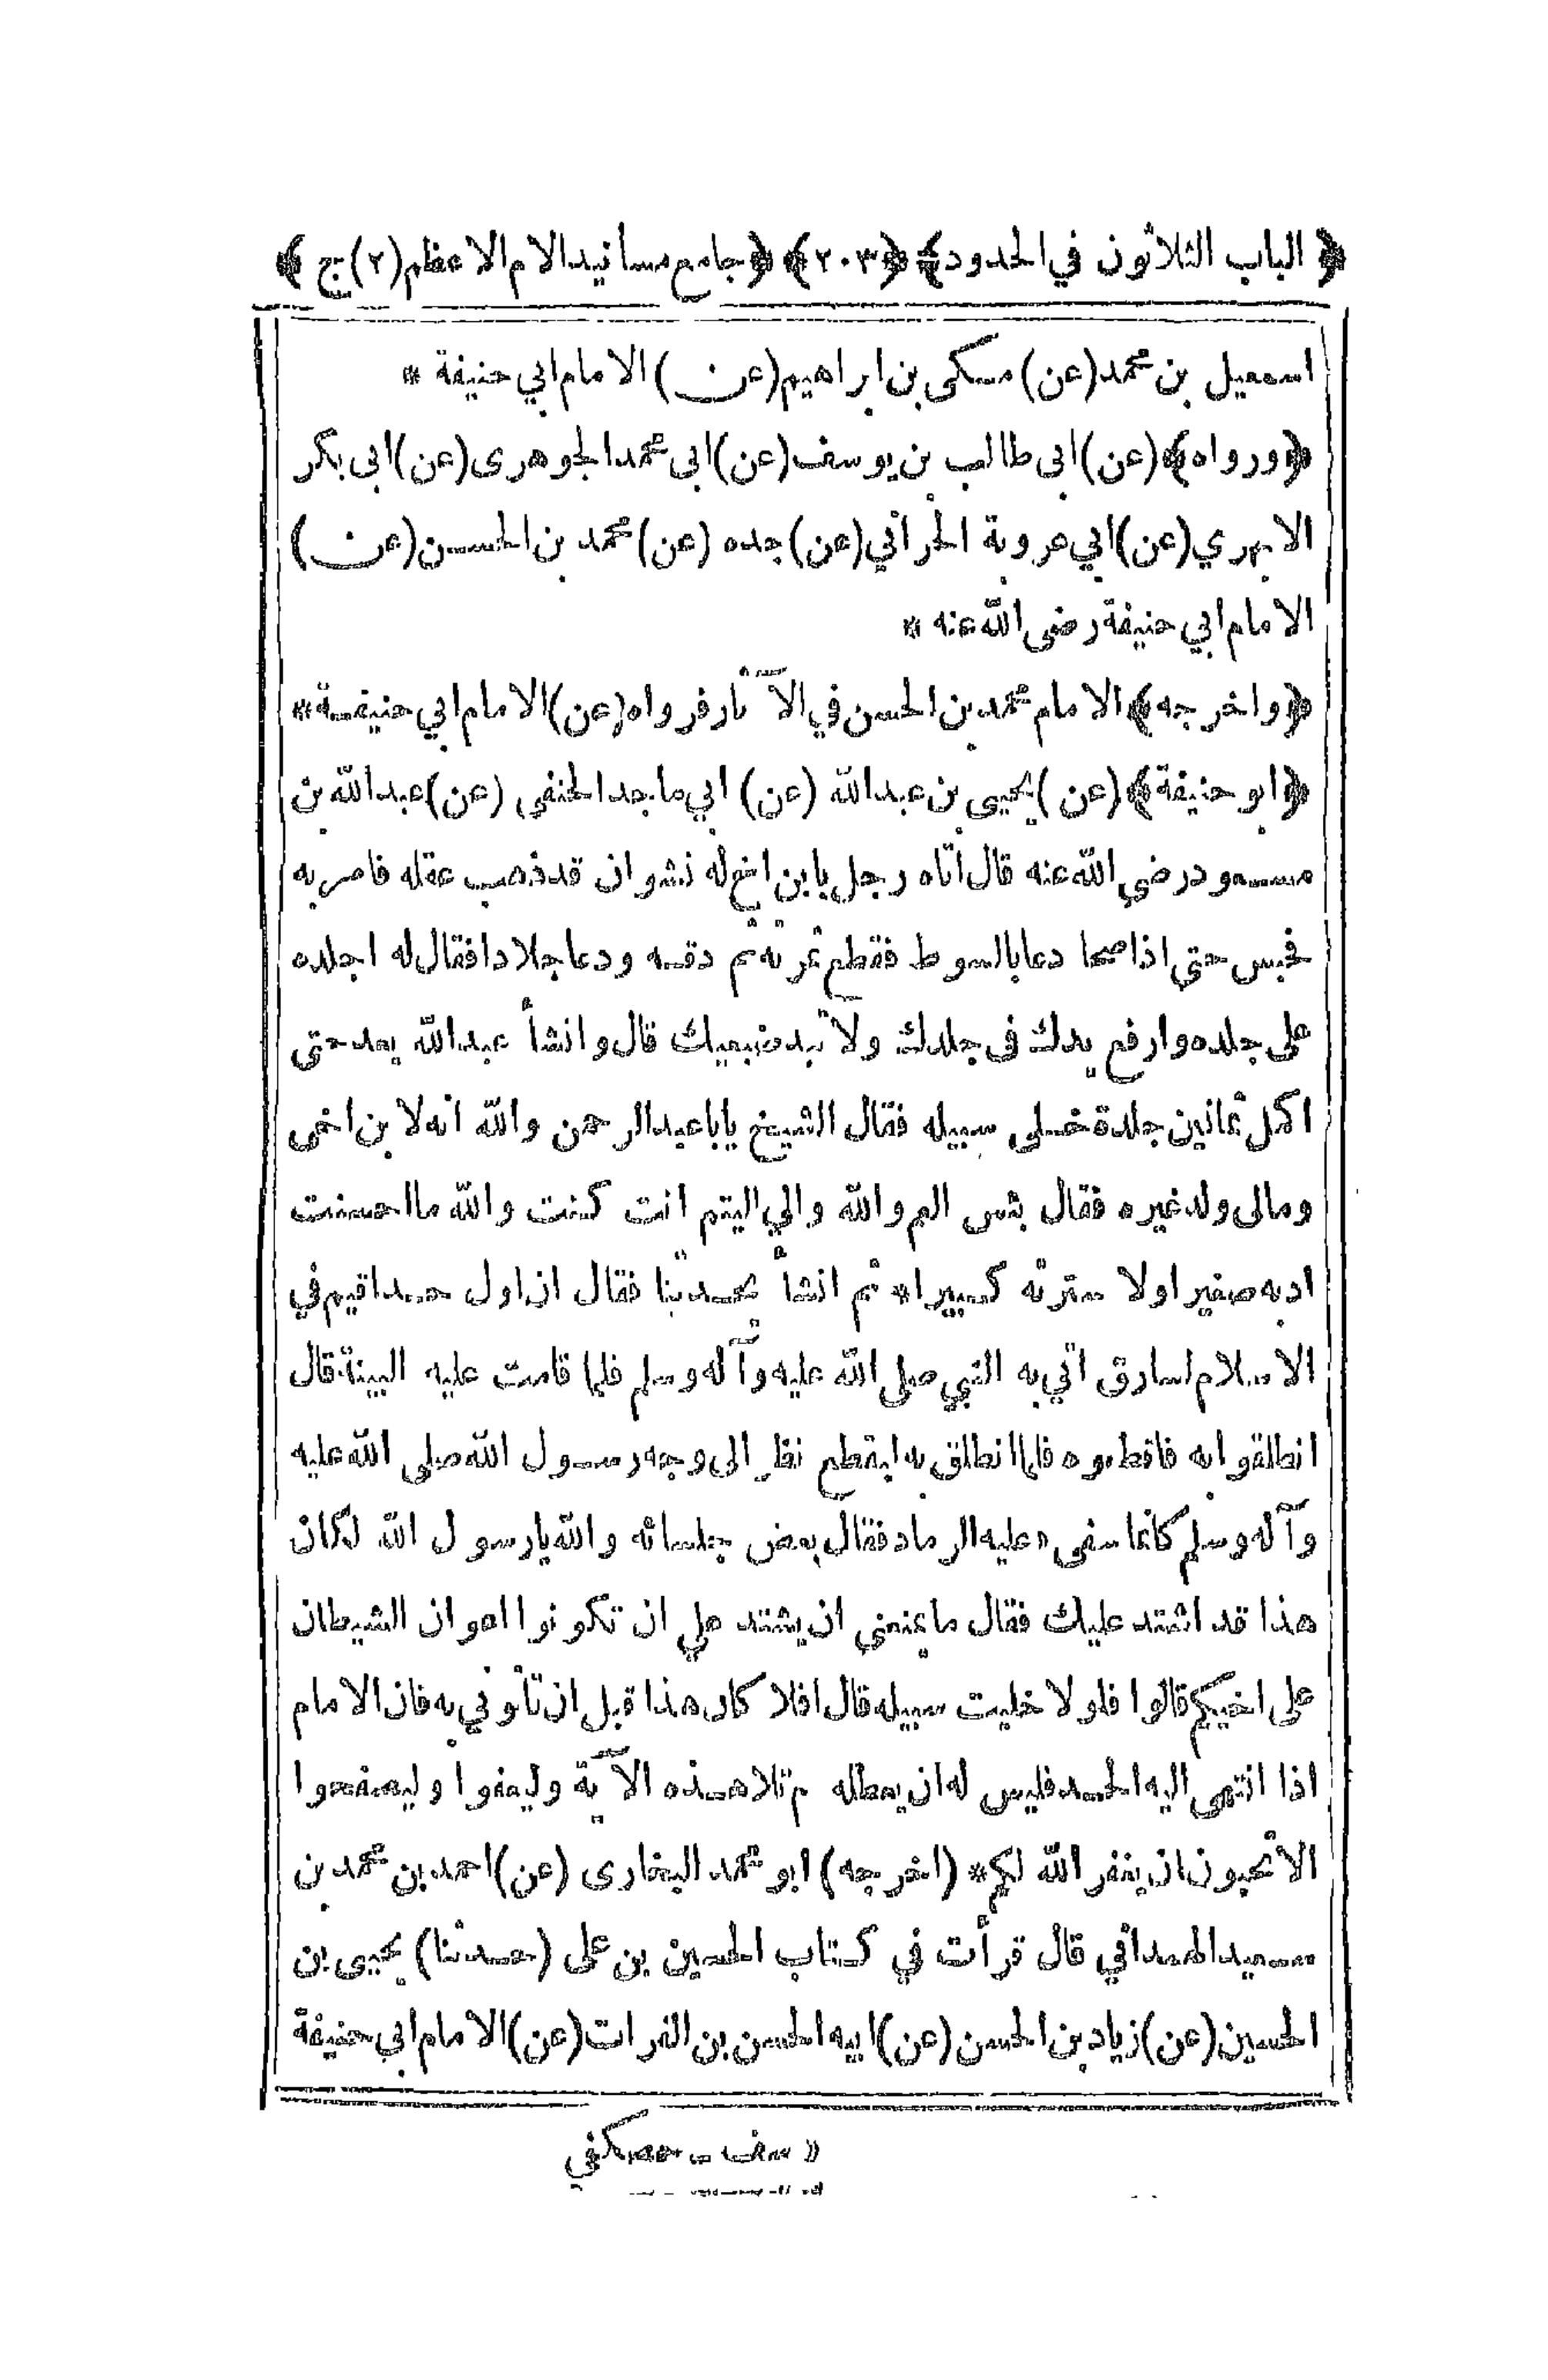 ﴿ الباب الثلاثون في الحدود ﴾ ﴿ ٢٠٣ ﴾ ﴿ جامع مسانيد الامام الاعظم (٢) ج ﴾
اسمعيل بن محمد (عن) مكى بن ابراهيم (عن) الامام ابي حنيفة *
﴿ ورواه ﴾ (عن) ابى طالب بن يوسف (عن) ابى محمد الجوهرى (عن) ابى بكر
الابهري (عن) ابي عروبة الحراني (عن) جده (عن) محمد بن الحسن (عن)
الامام ابي حنيفة رضى الله عنه *
﴿ واخرجه ﴾ الامام محمد بن الحسن في الآثار فرواه (عن) الامام ابي حنيفة *
﴿ ابو حنيفة ﴾ (عن) يحيى بن عبدالله (عن) ابي ماجد الحنفى (عن) عبدالله بن
مسعود رضي الله عنه قال اتاه رجل بابن اخ له نشوان قد ذهب عقله فامر به
فحبس حتى اذا صحا دعا بالسوط فقطع ثمرته ثم دقه ودعا جلادا فقال له اجلده
على جلده وارفع يدك فى جلدك ولا تبد ضبعيك قال وانشأ عبدالله يعد حتى
اكمل ثمانين جلدة خلى سبيله فقال الشيخ يا ابا عبدالرحمن والله انه لابن اخى
ومالى ولد غيره فقال بئس العم والله والي اليتيم انت كنت والله ما احسنت
ادبه صغيرا ولا سترته كبيرا * ثم انشأ يحدثنا فقال ان اول حد اقيم في
الاسلام لسارق اتي به النبي صلى الله عليه وآله وسلم فلما قامت عليه البينة قال
انطلقوا به فاقطعوه فلما انطلق به ليقطع نظر الى وجه رسول الله صلى الله عليه
وآله وسلم كأنما سفى « عليه الرماد فقال بعض جلسائه والله يا رسول الله لكان
هذا قد اشتد عليك فقال ما يمنعني ان يشتد علي ان تكونوا اعوان الشيطان
على اخيكم قالوا فلولا خليت سبيله قال افلا كان هذا قبل ان تأتوني به فان الامام
اذا انتهى اليه الحد فليس له ان يعطله ثم تلا هذه الآية وليعفوا وليصفحوا
الا تحبون ان يغفر الله لكم * (اخرجه) ابو محمد البخارى (عن) احمد بن محمد بن
سعيد الهمداني قال قرأت في كتاب الحسين بن على (حدثنا) يحيى بن
الحسين (عن) زياد بن الحسن (عن) ابيه الحسن بن الفرات (عن) الامام ابي حنيفة
« سف - حصكفي